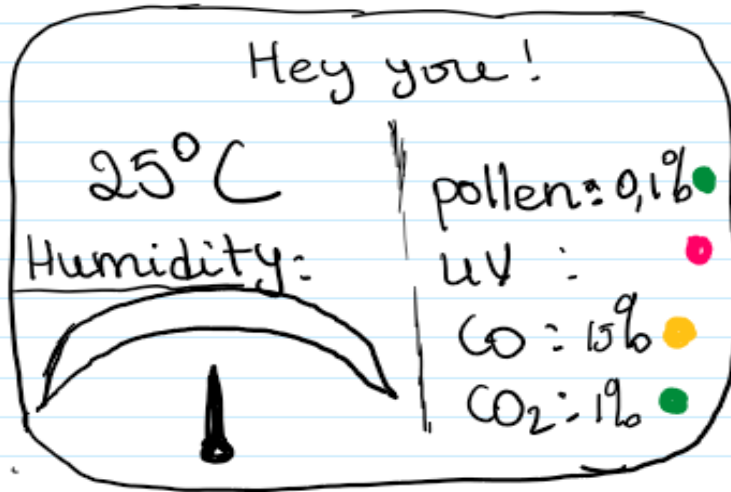 Hey you!
25°C
Humidity:
pollen: 0,1%
UV :
CO : 15%
CO₂ : 1%